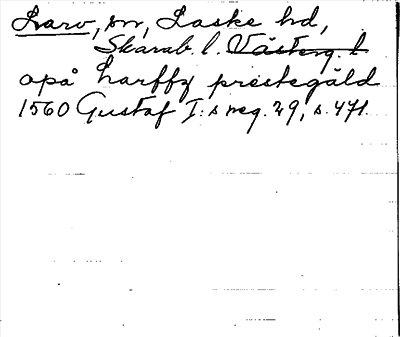 Larv, sn, Laske hd,
Skarab. l. Västerg. l
apå Larffz prestegäld
1560 Gustaf I:s reg. 29, s. 471.